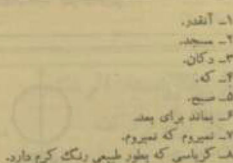 ۱ـ آنقدر.
۲ـ مسجد.
۳ـ دکان.
۴ـ که.
۵ـ صبح.
۶ـ بماند برای بعد.
۷ـ نمیروم که نمیروم.
۸ـ کرباسی که بطور طبیعی رنگ کرم دارد.